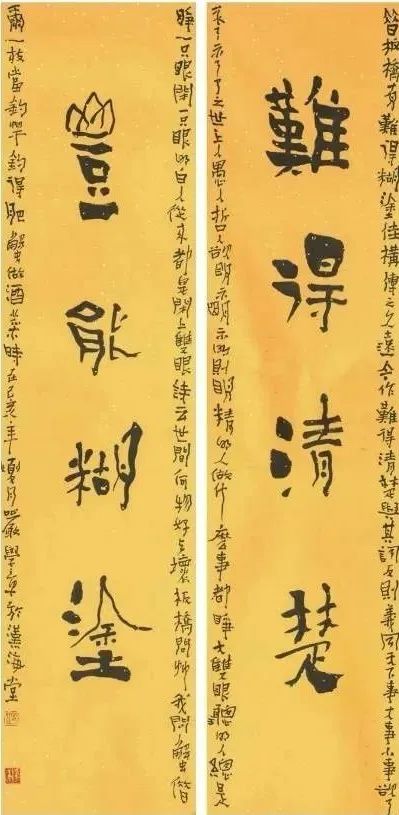 昔板橋有難得糊塗佳構傳之久遠今作難得清楚與其詞反則義同天下事大事小事欲了
難得清楚
未了不了了之世上人愚人哲人欲明不明不明則明精明的人做什麼事都睜大雙眼聰明的人總是
睜一只眼閉一只眼明白人從來都是閉上雙眼詩云世間何物好與壞板橋問竹我問蟹借
豈能糊塗
爾一枝當釣竿釣得肥蟹做酒菜時在己亥年月學章於漢海堂